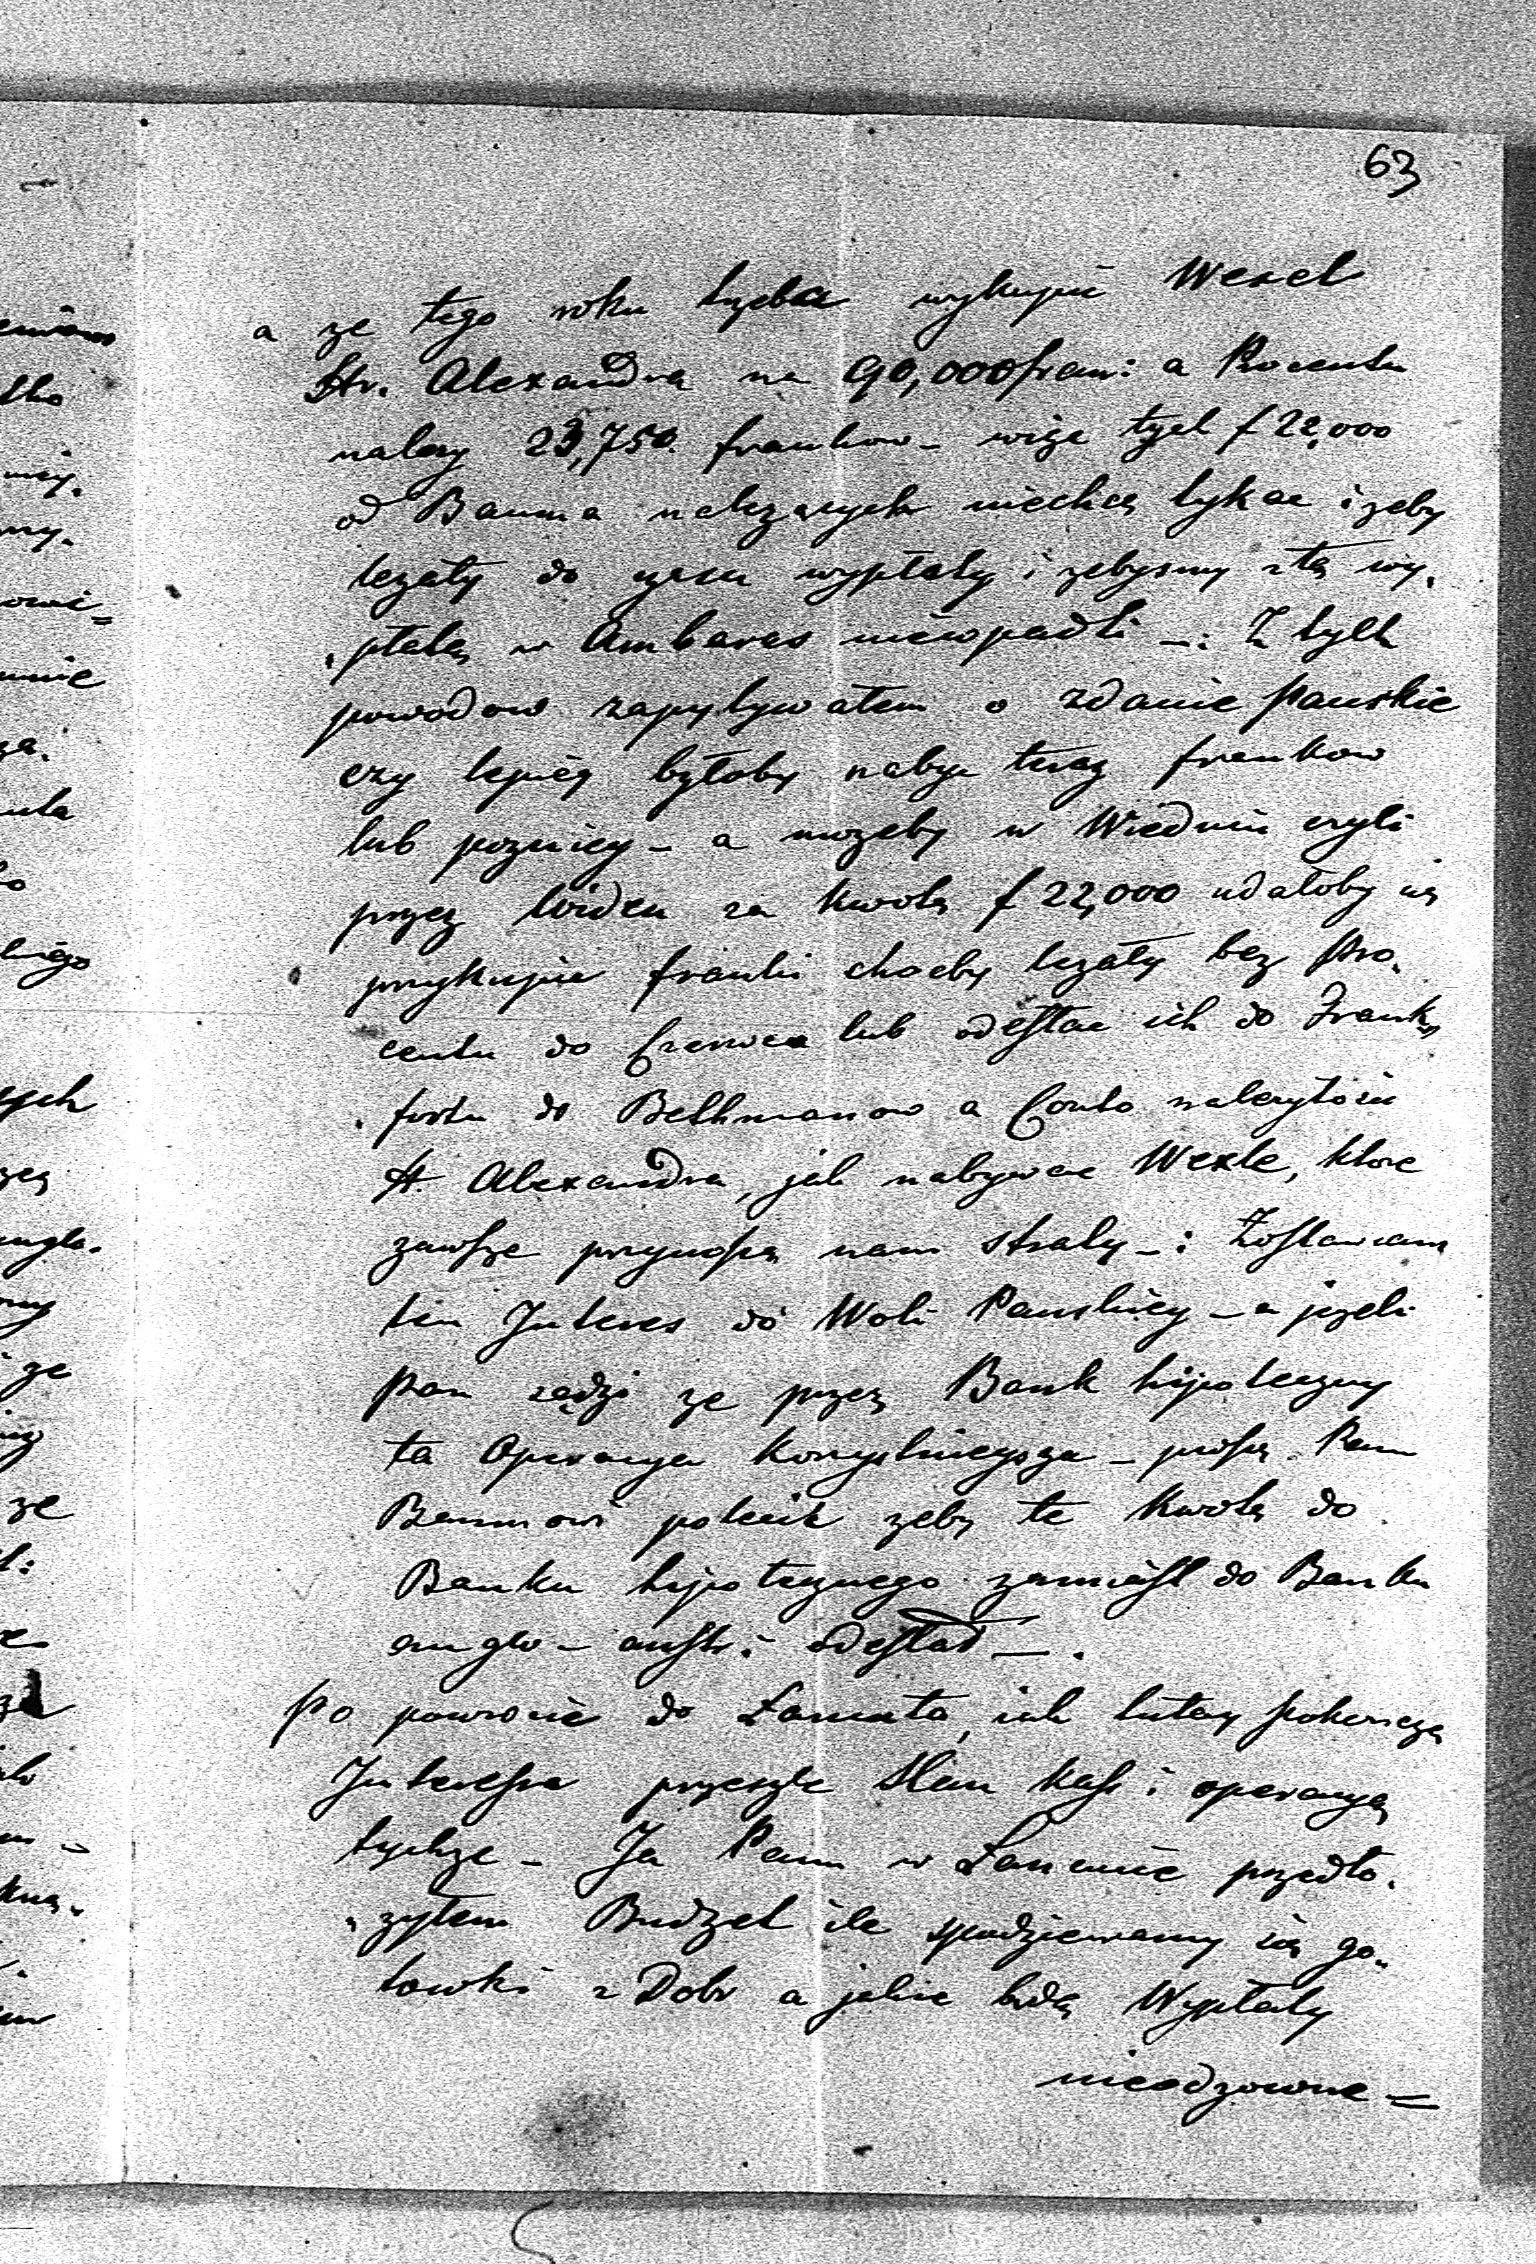 63
a ze tego roku trzeba wykupić Wexel
Hr. Alexandra na 90,000 fran: a Procentu
należy 23,750. frankow – więc tych f 22,000
od Bauma należących niechcę tykac i zeby
lezały do czasu wypłaty i zebysmy z tą wy,
,płatą w Ambaras niewpadli –: Z tych
powodow zapytywałem o zdanie Panskie
czy lepiéy byłoby nabyc teraz frankow
lub pozniey – a mozeby w Wiedniu czyli
przez Wideń za kwotę f 22,000 udałoby się
przykupic franki choćby lezały bez Pro,
centu do Czerwca lub odesłac ich do Frank,
,fortu do Bethmanow a Conto nalezytości
H. Alexandra, jak nabywac Wexle, ktore
zawsze przynoszą nam straty –: Zostawiam
ten Interes do Woli Panskiéy – a jezeli
Pan sądzi ze przez Bank hipoteczny
ta Operacya korzystnieysza – proszę Pan
Baumowi polecic zeby te kwotę do
Banku hipotecznego zamiast do Banku
anglo – austr: odesłał –.
Po powrocie do Łancuta, jak tutay pokonczę
Interessa przeszle Stan kass i operacyą
tychze – Ja Panu w Łancucie przedło,
,zyłem Budzet ile spodziewamy się go,
towki z Dobr a jakie będą Wypłaty
nieodzowne =